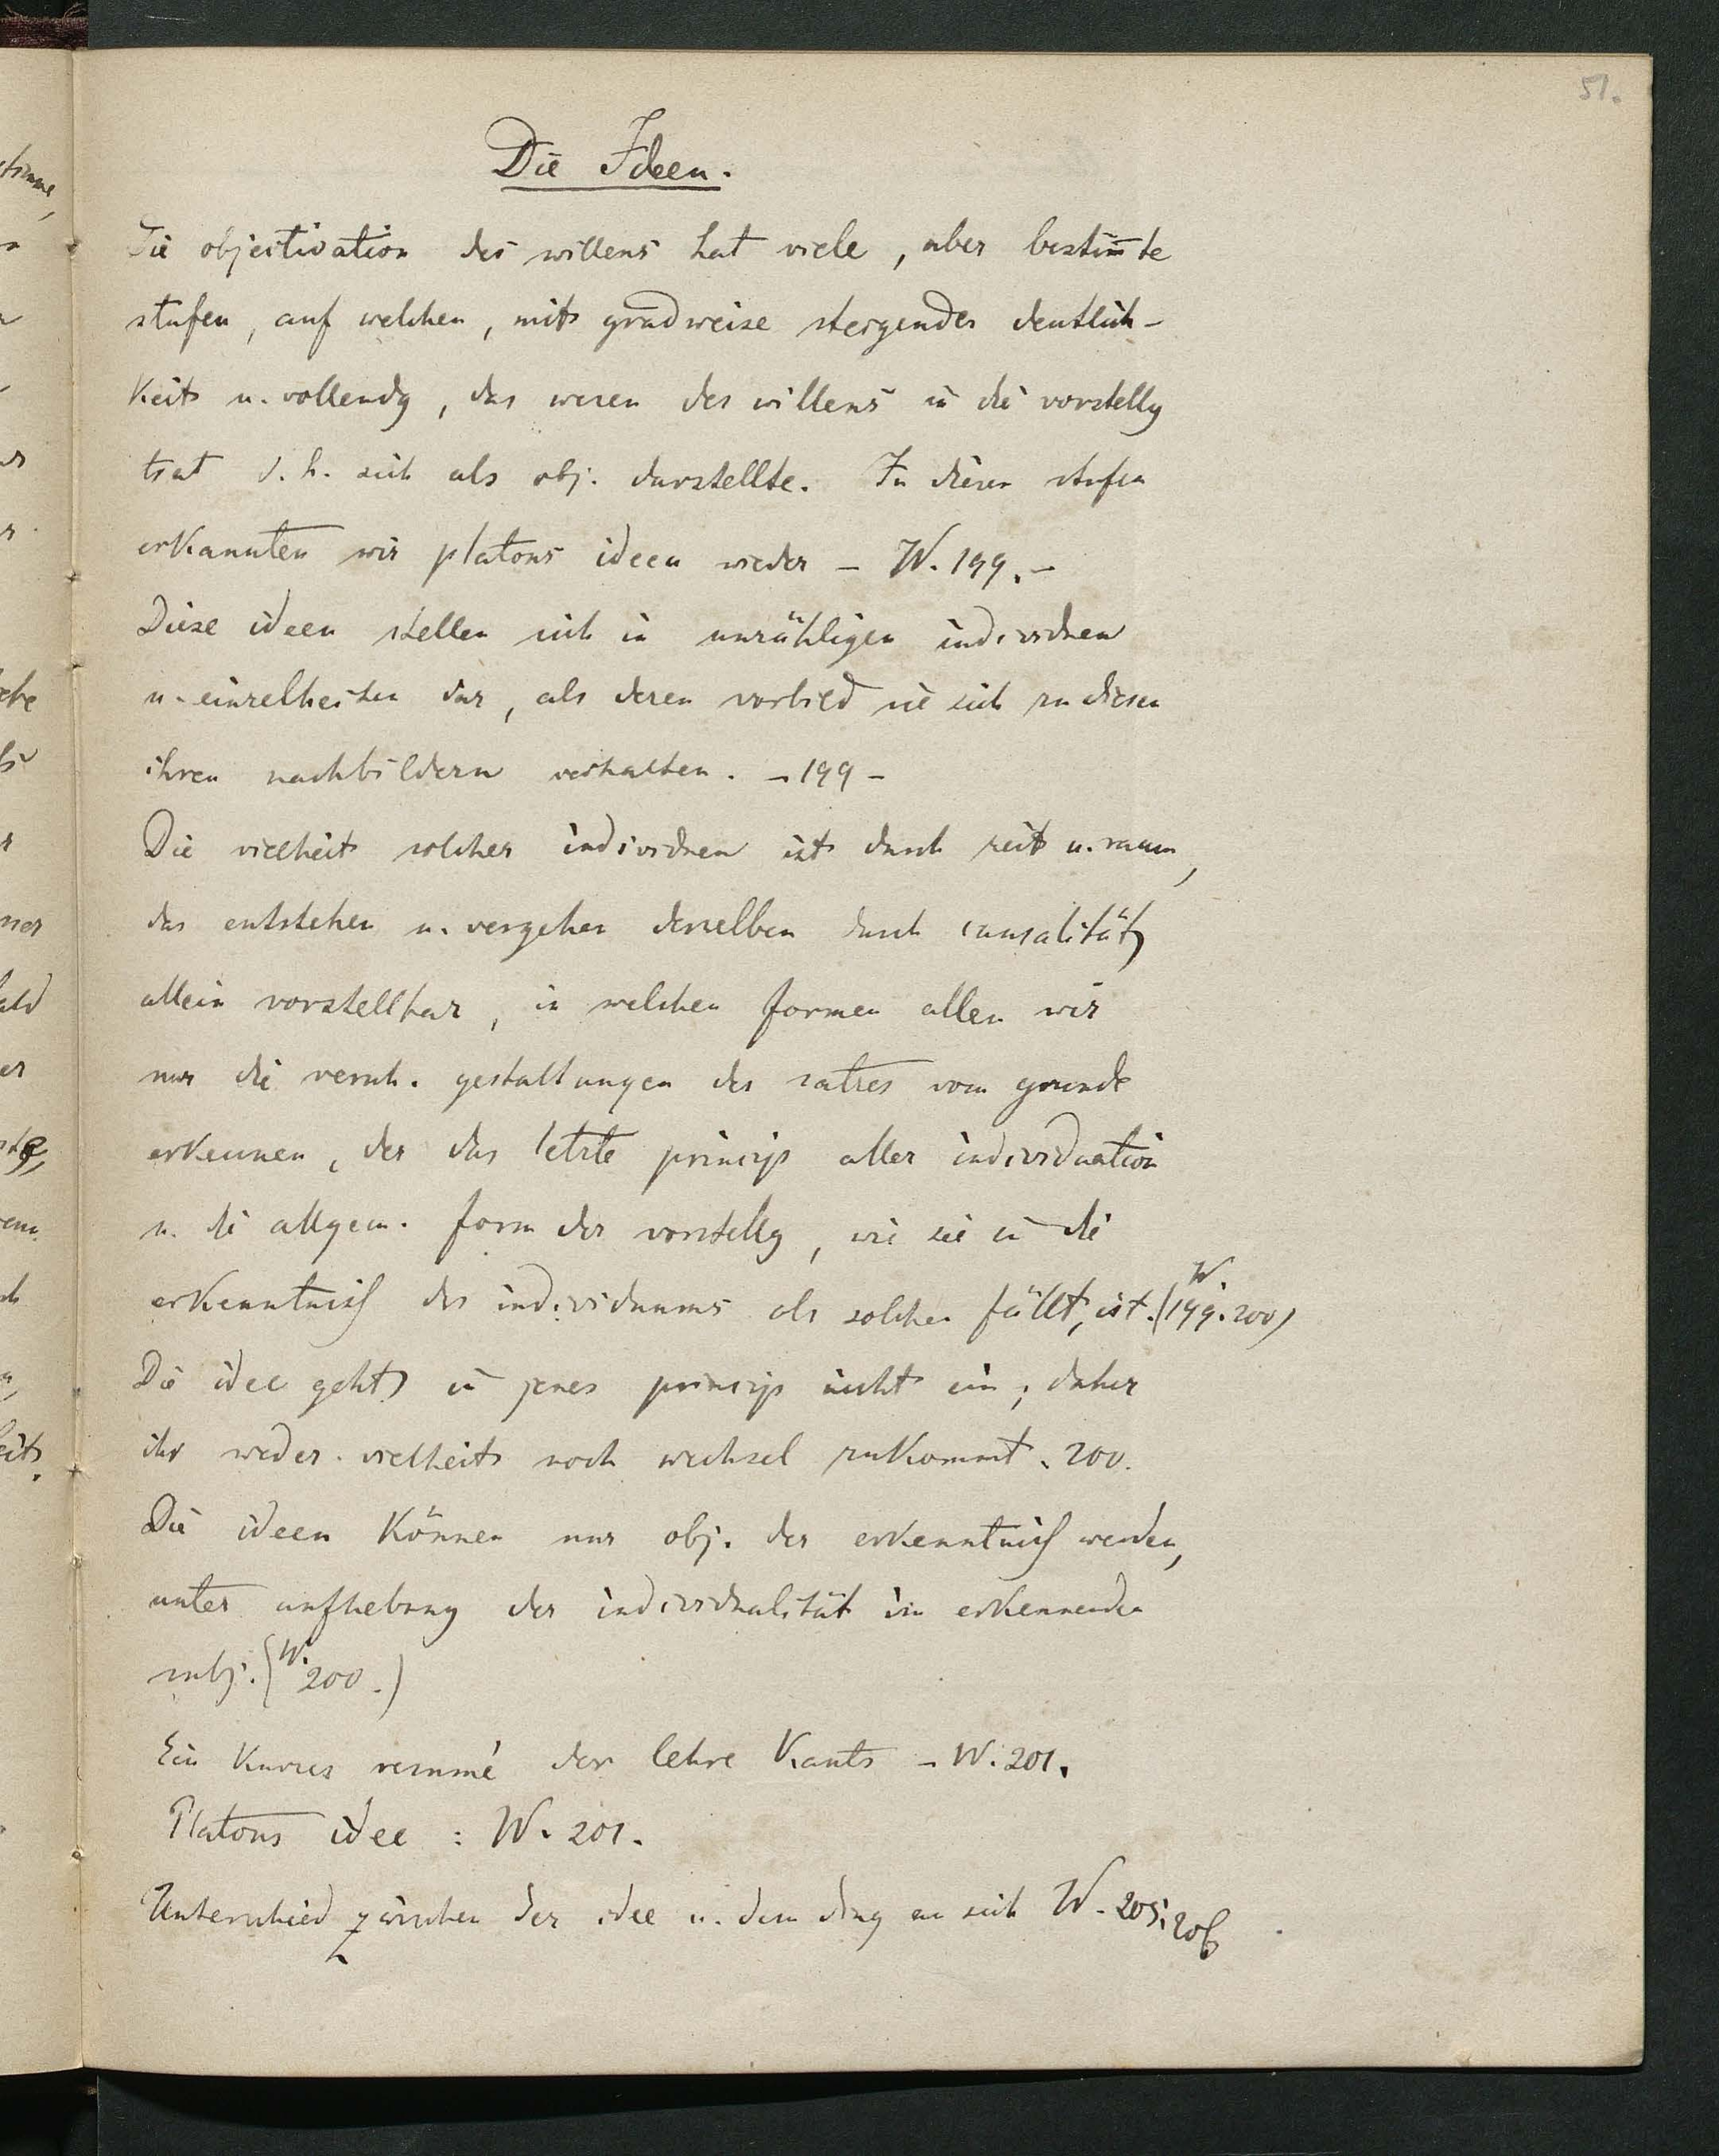 51.
Die Ideen.
Die objectivation des willens hat viele, aber bestim̄te
stufen, auf welchen, mit gradweise steigender deutlich-
keit u. vollendg, das wesen des willens in die vorstellg
trat d. h. sich als obj. darstellte. In diesen stufen
erkannten wir platons ideen wieder – W. 199. –
Diese ideen stellen sich in unzähligen individuen
u. einzelheiten dar, als deren vorbild sie sich zu diesen
ihren nachbildern verhalten. – 199 –
Die vielheit solcher individuen ist durch zeit u. raum,
das entstehen u. vergehen derselben durch causalität
allein vorstellbar, in welchen formen allen wir
nur die versch. gestaltungen des satzes vom grunde
erkennen, der das letzte princip aller individuation
u. die allgem. form der vorstellg, wie sie in die
erkenntniß des individuums als solchen fällt, ist. (W. 199. 200)
Die idee geht in jenes princip nicht ein; daher
ihr weder vielheit noch wechsel zukommt. 200.
Die ideen können nur obj. der erkenntniß werden,
unter aufhebung der individualität im erkennenden
subj. (W. 200.)
Ein kurzes resumé der lehre Kants – W. 201.
Platons idee : W. 201.
Unterschied zwischen der idee u. dem ding an sich W. 205; 206